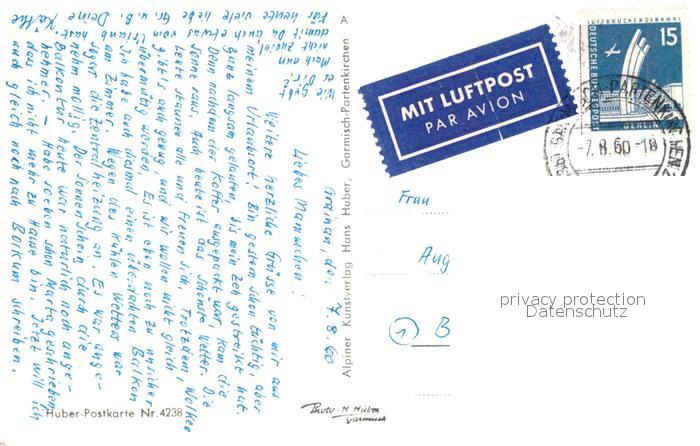 Grainau, den 7.8.60
Liebes Mamuchen!
Weitere herzliche Grüsse von mir aus
meinem Urlaubsort! Bin gestern schon tüchtig aber
ganz langsam gelaufen, bis mein Zeh gestreikt hat.
Denn nachdem der Koffer ausgepackt war, kam die
Sonne raus. Auch heute ist das schönste Wetter. Die
Leute staunen alle und freuen sich. Trotzdem, Wolken
gibt's auch genug, und wir wollen nicht gleich
übermütig werden. Es ist eben noch zu unsicher.
Ich habe auch diesmal einen überdachten Balkon
am Zimmer. Wegen des kühlen Wetters war
sogar die Zentralheizung an. Es war ange-
nehm mollig. Der Sonnenschein durch die
Balkontür heute war natürlich noch ange-
nehmer. – Habe soeben schon Marta geschrieben
dass ich nicht mehr zu Hause bin. Jetzt will ich
auch gleich noch nach Borkum schreiben.
Wie geht
es Dir?
Mach nur
nicht zuviel
damit Du auch etwas vom Urlaub hast.
Für heute viele liebe Gr. u. B. Deine Käthe
A
Alpiner Kunstverlag Hans Huber, Garmisch-Partenkirchen
Huber-Postkarte Nr. 4238
Photo-H. Huber
Garmisch
MIT LUFTPOST
PAR AVION
LUFTBRÜCKENDENKMAL
15
DEUTSCHE BUNDESPOST
BERLIN
GARMISCH-PARTENKIRCHEN 2
-7.8.60-18
Frau
Aug
① B
privacy protection
Datenschutz